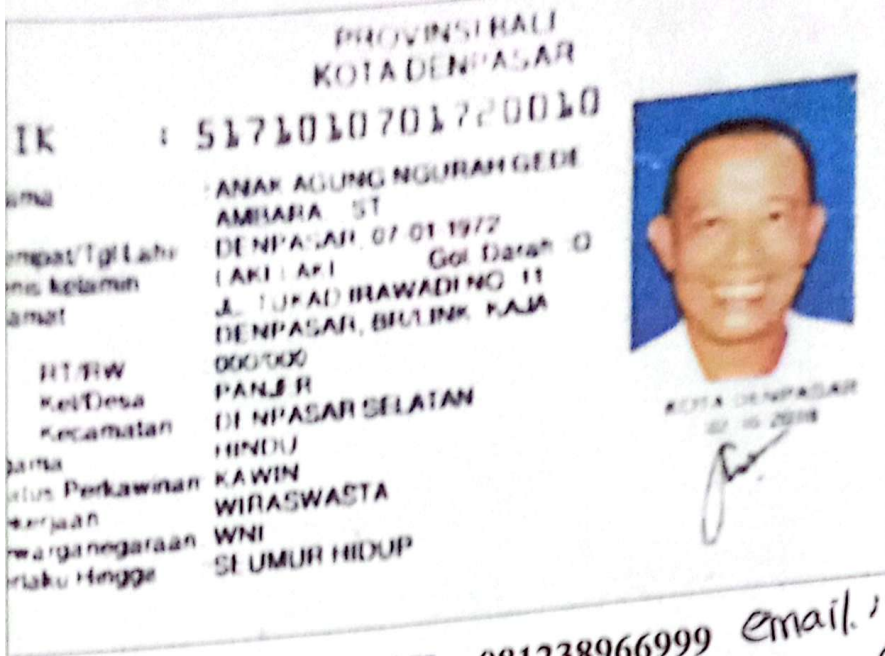 PROVINSI BALI
KOTA DENPASAR
IK : 5171010701720010
ama : ANAK AGUNG NGURAH GEDE
AMBARA ST
empat/Tgl Lahir DENPASAR, 07-01-1972
enis kelamin LAKI-LAKI Gol. Darah : O
amat JL. TUKAD IRAWADI NO 11
DENPASAR, BR/LINK KAJA
RT/RW 000/000
Kel/Desa PANJER
Kecamatan DENPASAR SELATAN
gama HINDU
atus Perkawinan KAWIN
ekerjaan WIRASWASTA
ewarganegaraan WNI
erlaku Hingga SEUMUR HIDUP
KOTA DENPASAR
081238966999 email :